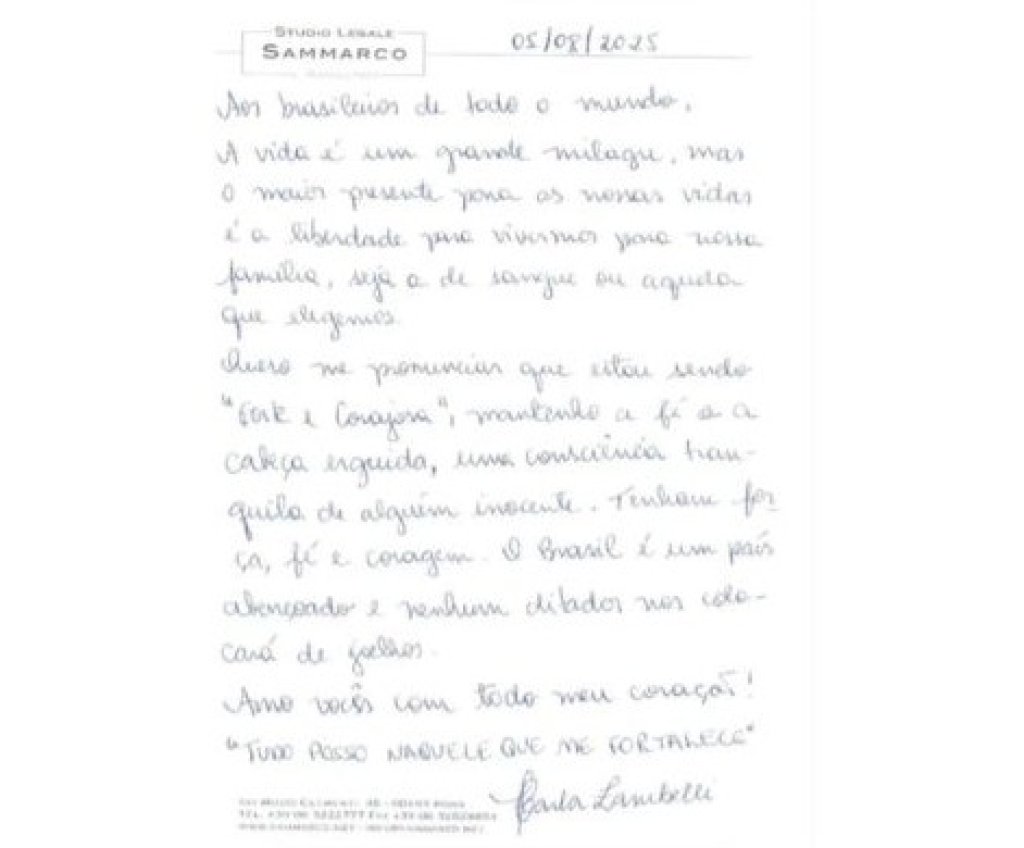 STUDIO LEGALE
SAMMARCO
05/08/2025
Aos brasileiros de todo o mundo,
A vida é um grande milagre, mas
o maior presente para as nossas vidas
é a liberdade para vivermos para nossa
família, seja a de sangue ou aquela
que elegemos.
Quero me pronunciar que estou sendo
"Forte e Corajosa", mantenho a fé e a
cabeça erguida, uma consciência tran-
quila de alguém inocente. Tenham for-
ça, fé e coragem. O Brasil é um país
abençoado e nenhum ditador nos colo-
cará de joelhos.
Amo vocês com todo meu coração!
"TUDO POSSO NAQUELE QUE ME FORTALECE"
Carla Zambelli